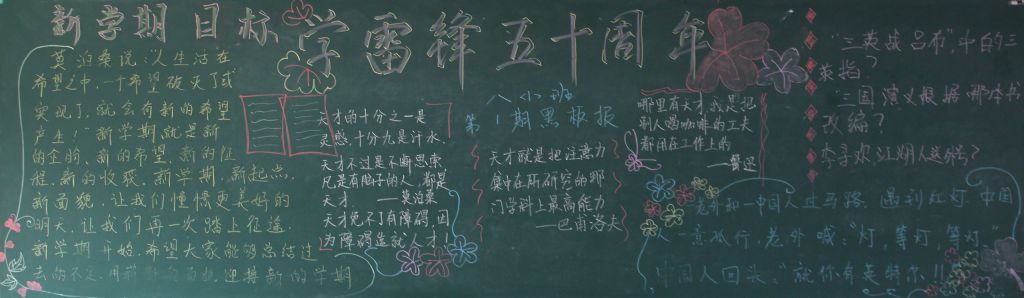 新学期目标
学雷锋五十周年
莫泊桑说:"人生活在
希望之中,一个希望破灭了或
实现了,就会有新的希望
产生!"新学期就是新
的企盼、新的希望、新的征
程、新的收获。新学期,新起点,
新面貌,让我们憧憬更美好的
明天,让我们再一次踏上征途
新学期开始,希望大家能够总结过
去的不足,迎接新的学期
天才的十分之一是
灵感,十分九是汗水.
天才不过是不断思索,
凡是有脑子的人,都是
天才. ——莫泊桑
天才免不了有障碍,因
为障碍造就人才
八小班
第1期黑板报
天才就是把注意力
集中在所研究的那
门学科上最高能力
——巴甫洛夫
哪里有天才,我是把
别人喝咖啡的工夫
都用在工作上的
——鲁迅
"三英战吕布"中的三
英指?
三国演义根据哪本书
改编?
李寻欢江湖人送号?
老外和一中国人过马路,遇到红灯,中国
人一意孤行,老外喊:"灯,等灯,等灯"
中国人回头:"就你有英特尔!!